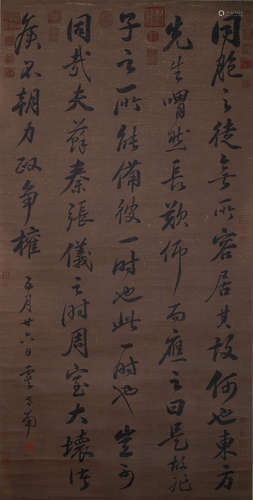 同胞之徒無所容居其故何也東方
先生喟然長歎仰而應之曰是故非
子之所能備彼一时也此一时也豈可
同哉夫蘇秦張儀之时周室大壞諸
侯不朝力政争權
五月廿六日